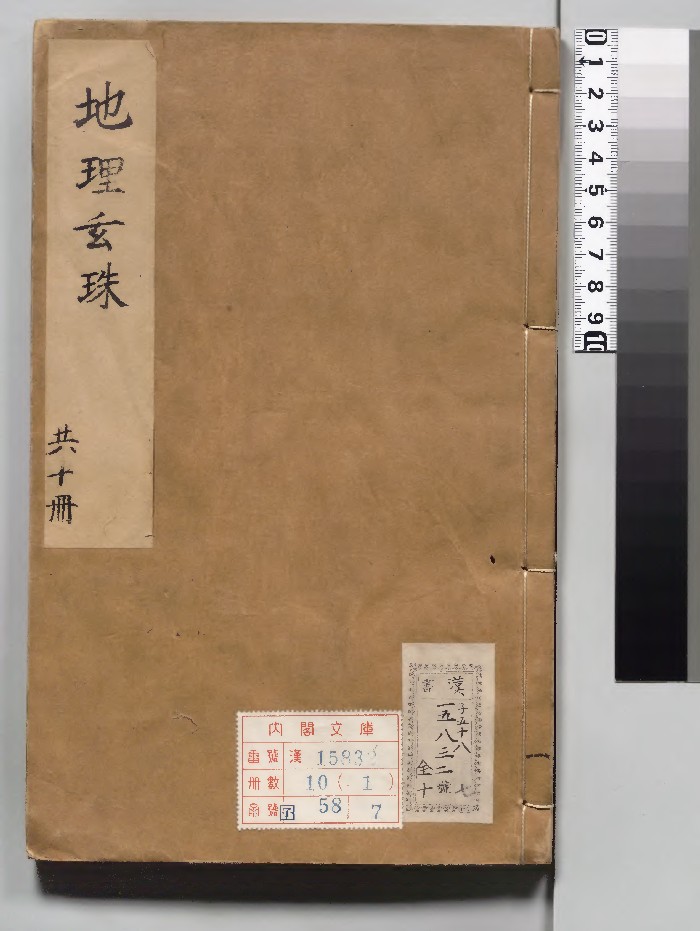 地理玄珠
共十冊
内閣文庫
番號 漢 1583
冊數 10 ( 1 )
函號 子 58 7
漢書
子五十八
一五八三二號
全十
七
0 1 2 3 4 5 6 7 8 9 10